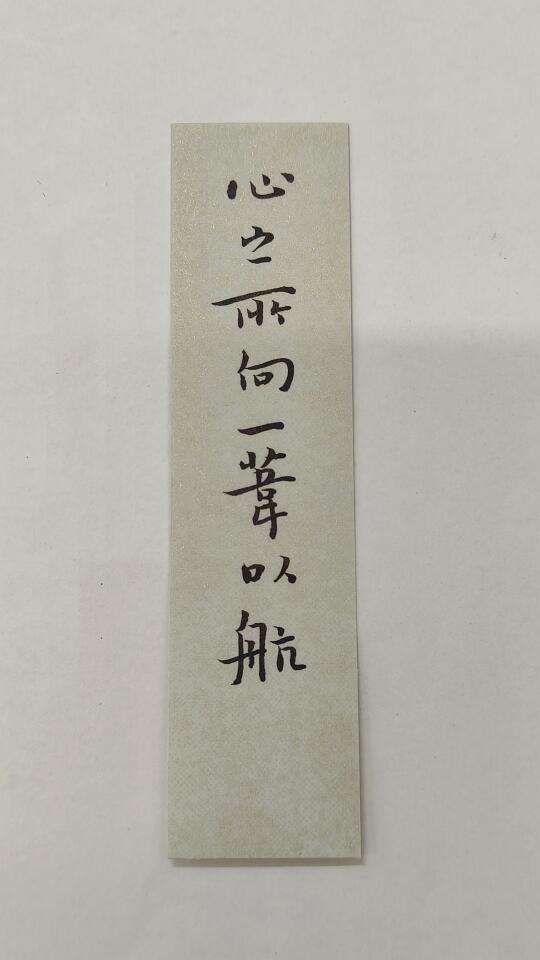 心之所向一葦以航